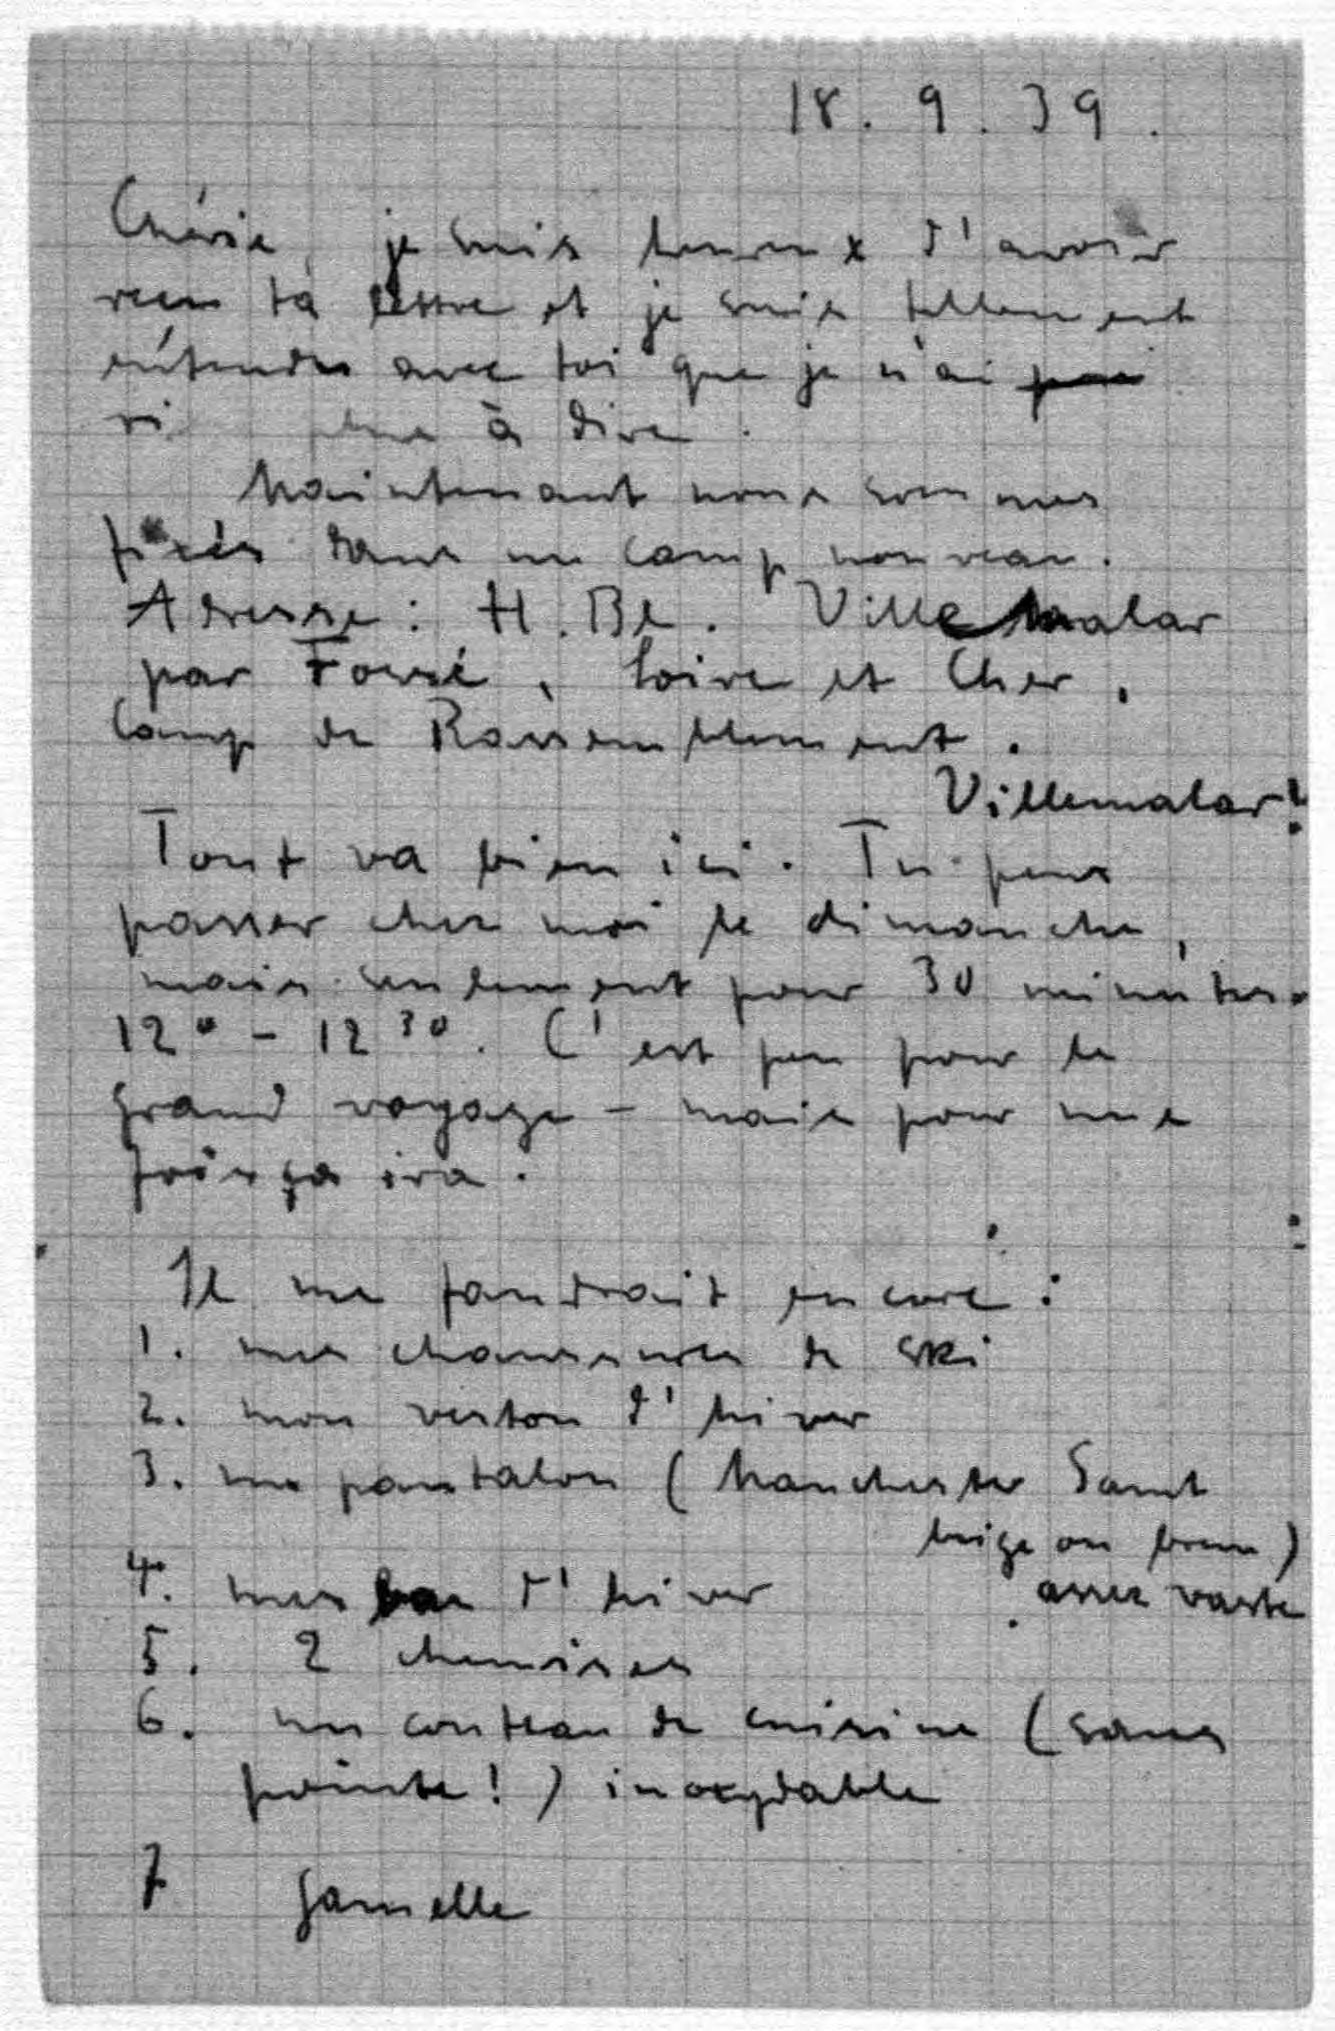 18.9.39.
Chérie, je suis heureux d'avoir
reçu ta lettre et je suis tellement
entendu avec toi que je n'ai
plus à dire.
Maintenant nous sommes
fixés dans un camp nouveau.
Adresse: H.Bl. Villemalar
par Fossé, Loire et Cher,
Camp de Rassemblement.
Villemalar!
Tout va bien ici. Tu peux
passer chez moi le dimanche,
mais seulement pour 30 minutes.
12⁰ - 12³⁰. C'est peu pour le
grand voyage - mais pour une
fois ça ira.
Il me faudrait encore:
1. mes chaussures de ski
2. mon veston d'hiver
3. un pantalon (Manchester Samt
beige ou brun)
assez vaste
4. mes bas d'hiver
5. 2 chemises
6. un couteau de cuisine (sans
pointe!) inoxydable
7 gamelle